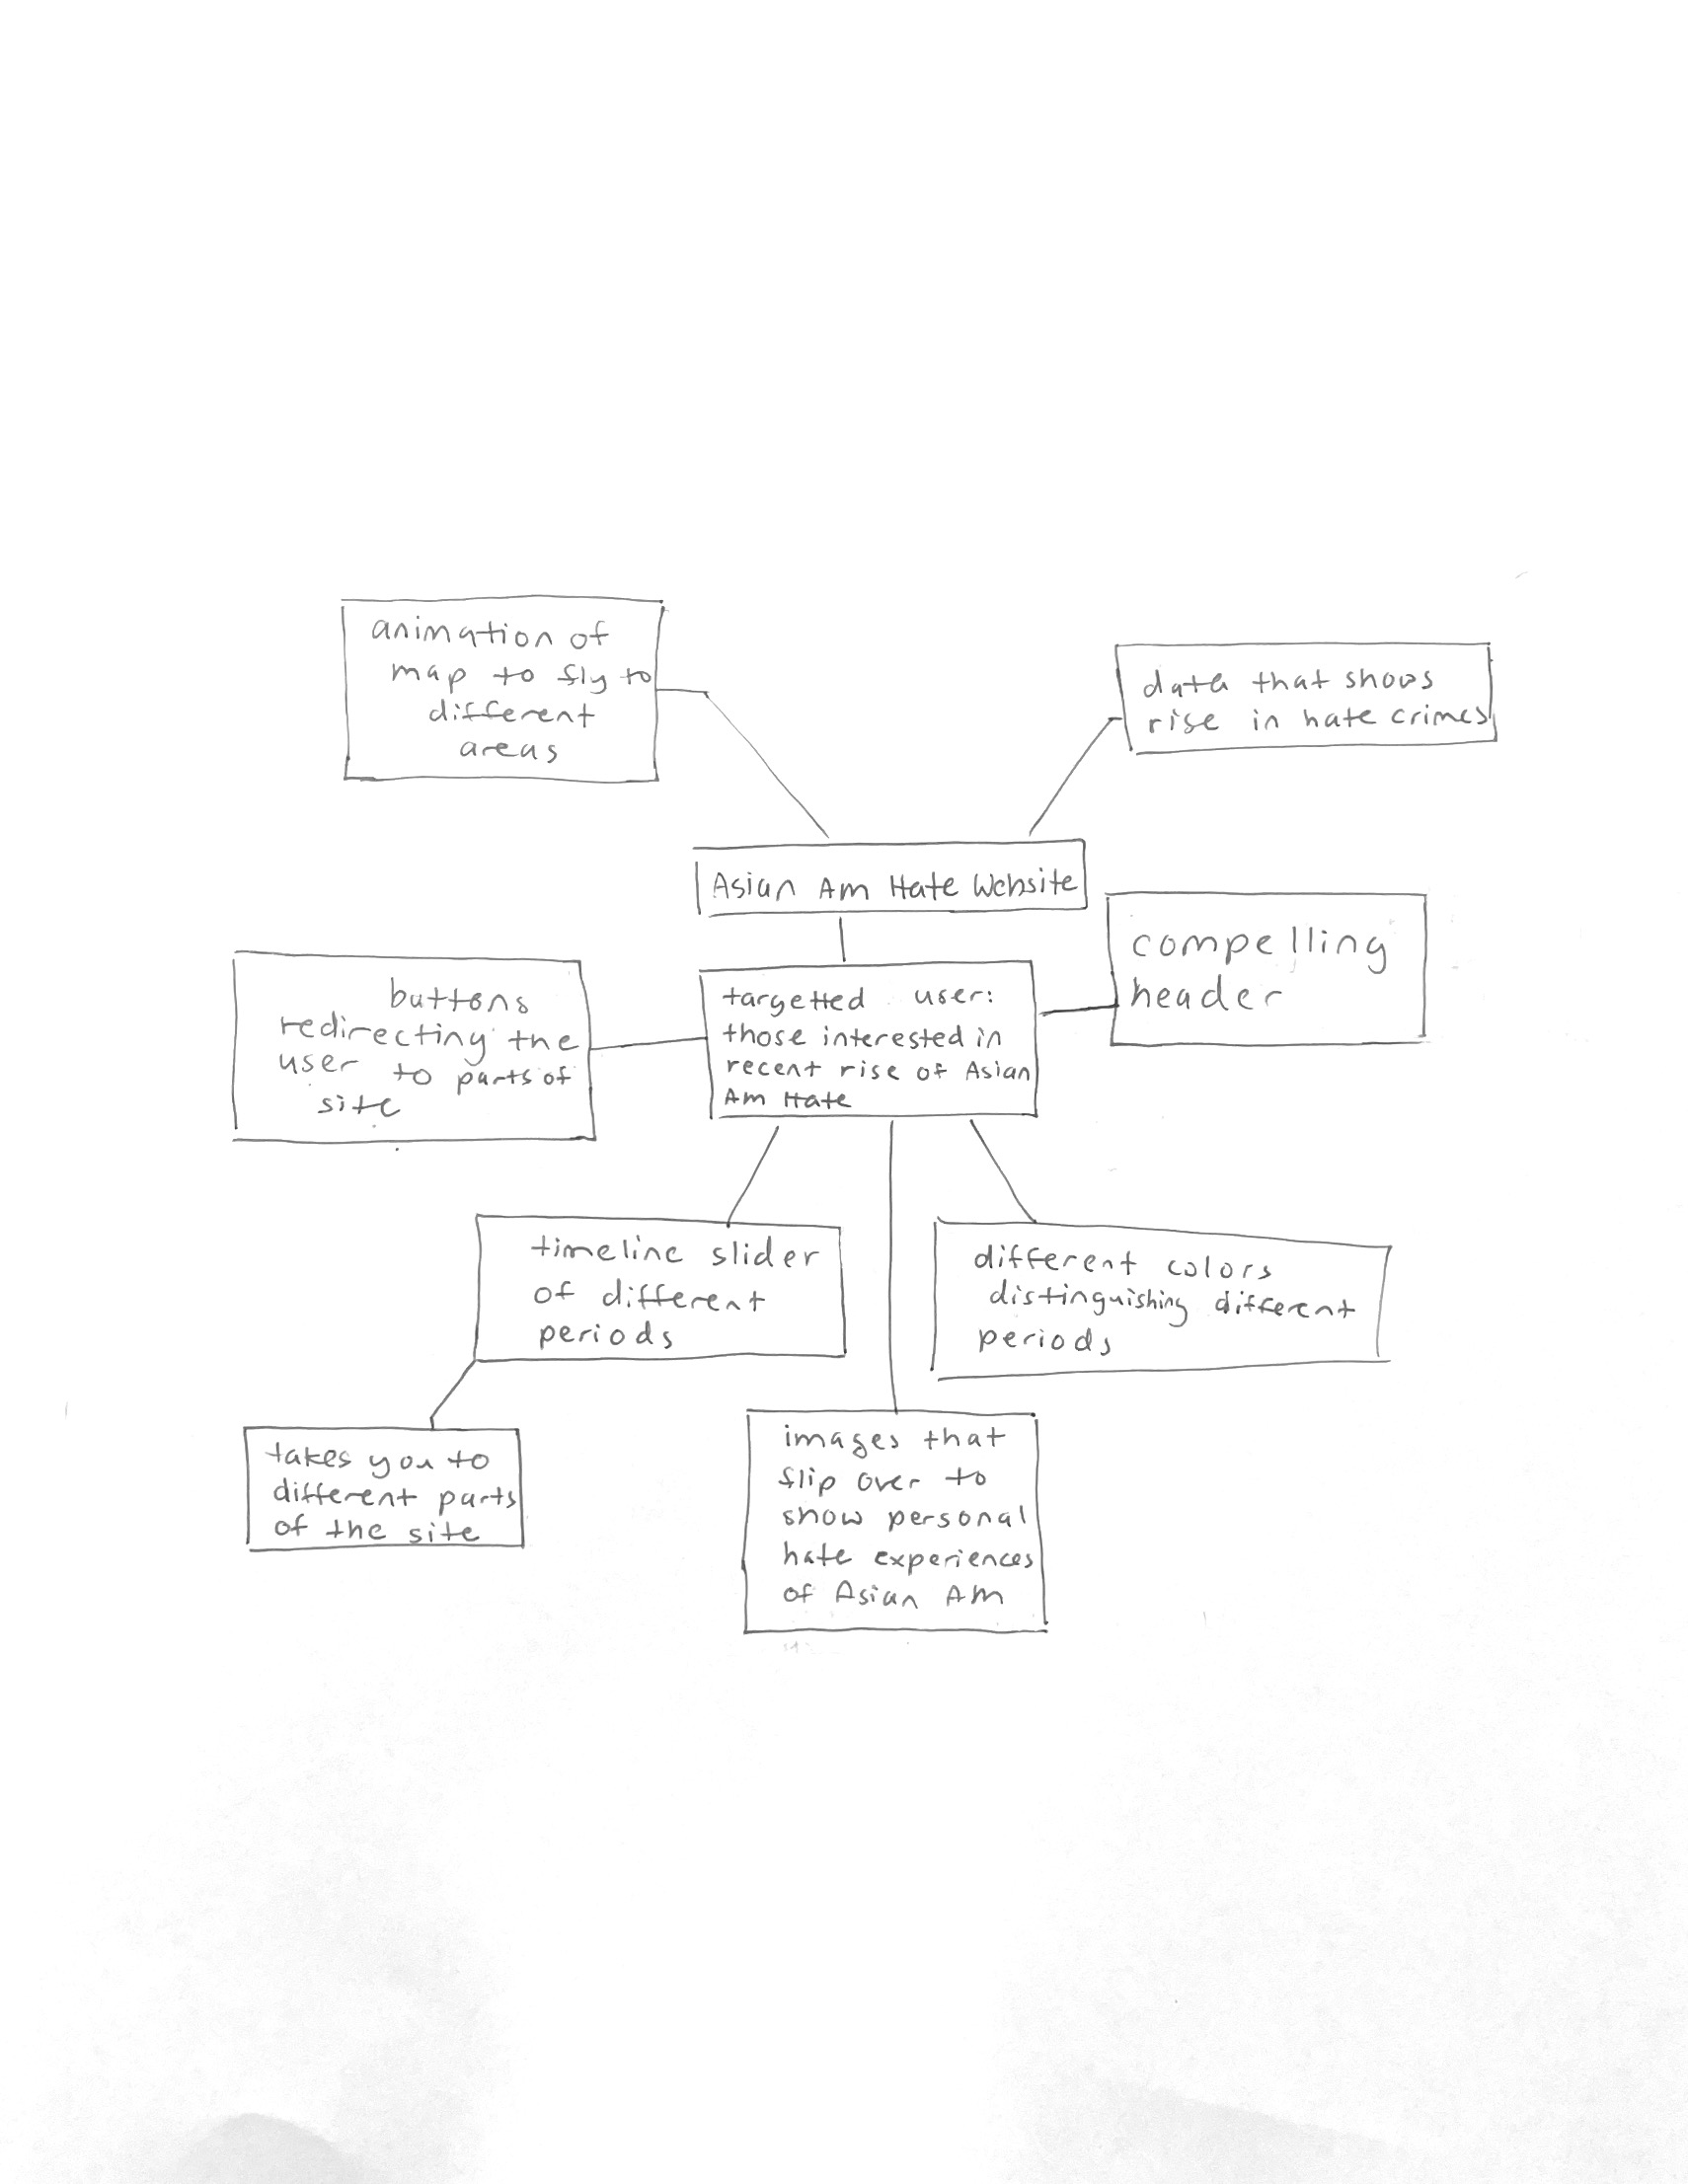 animation of
map to fly to
different
areas
data that shows
rise in hate crimes
Asian Am Hate Website
compelling
header
buttons
redirecting the
user to parts of
site
targetted user:
those interested in
recent rise of Asian
Am Hate
timeline slider
of different
periods
different colors
distinguishing different
periods
takes you to
different parts
of the site
images that
flip over to
show personal
hate experiences
of Asian Am